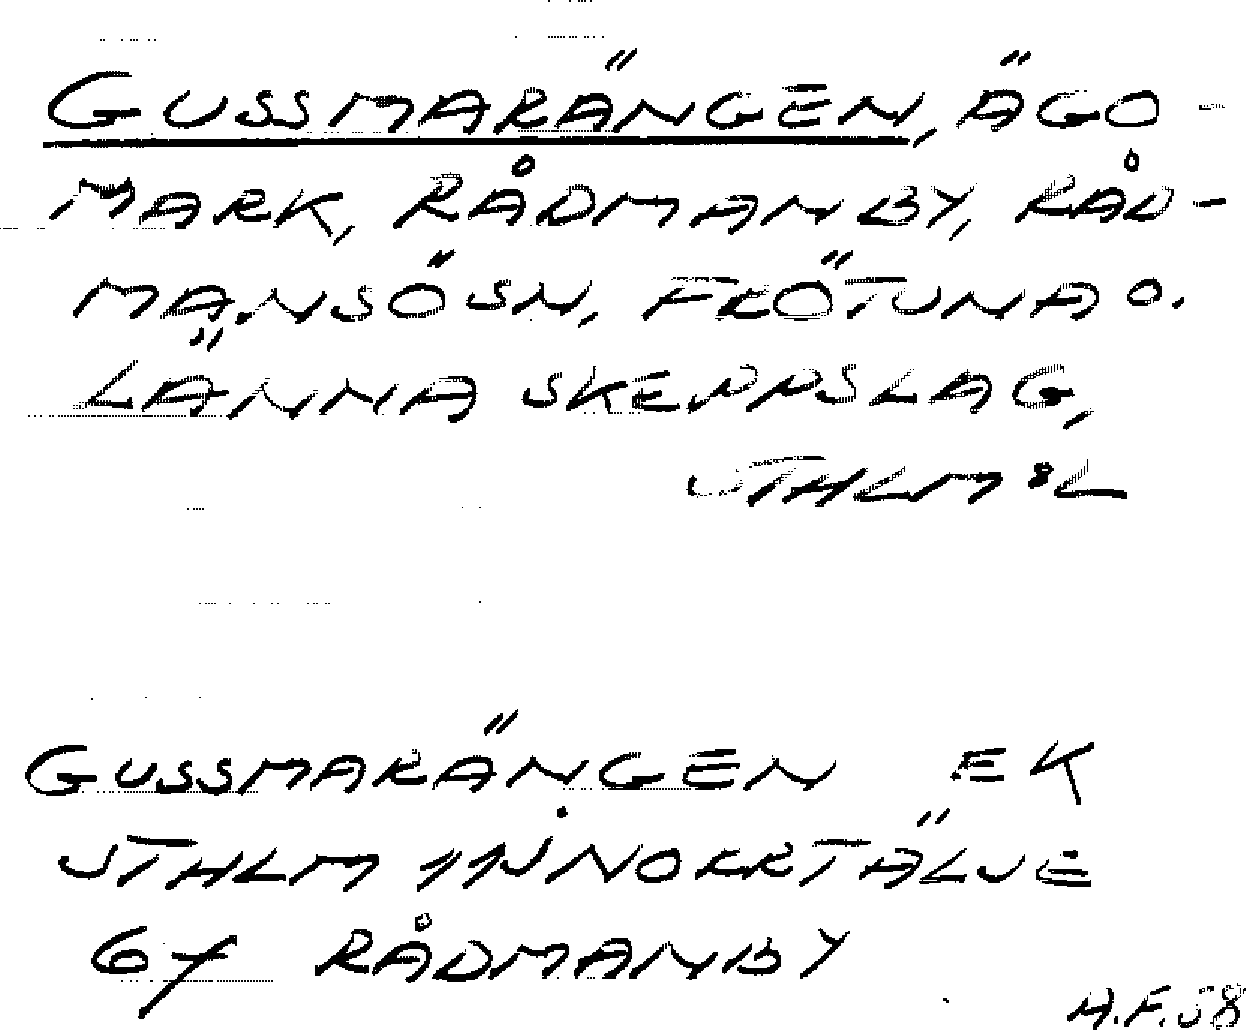 GUSSMARÄNGEN, ÄGO-
MARK, RÅDMANBY, RÅD-
MANSÖ SN, FRÖTUNA O.
LÄNNA SKEPPSLAG,
STHLM:S L
GUSSMARÄNGEN EK
STHLM 11J NORRTÄLJE
6f RÅDMANBY
H.F.58